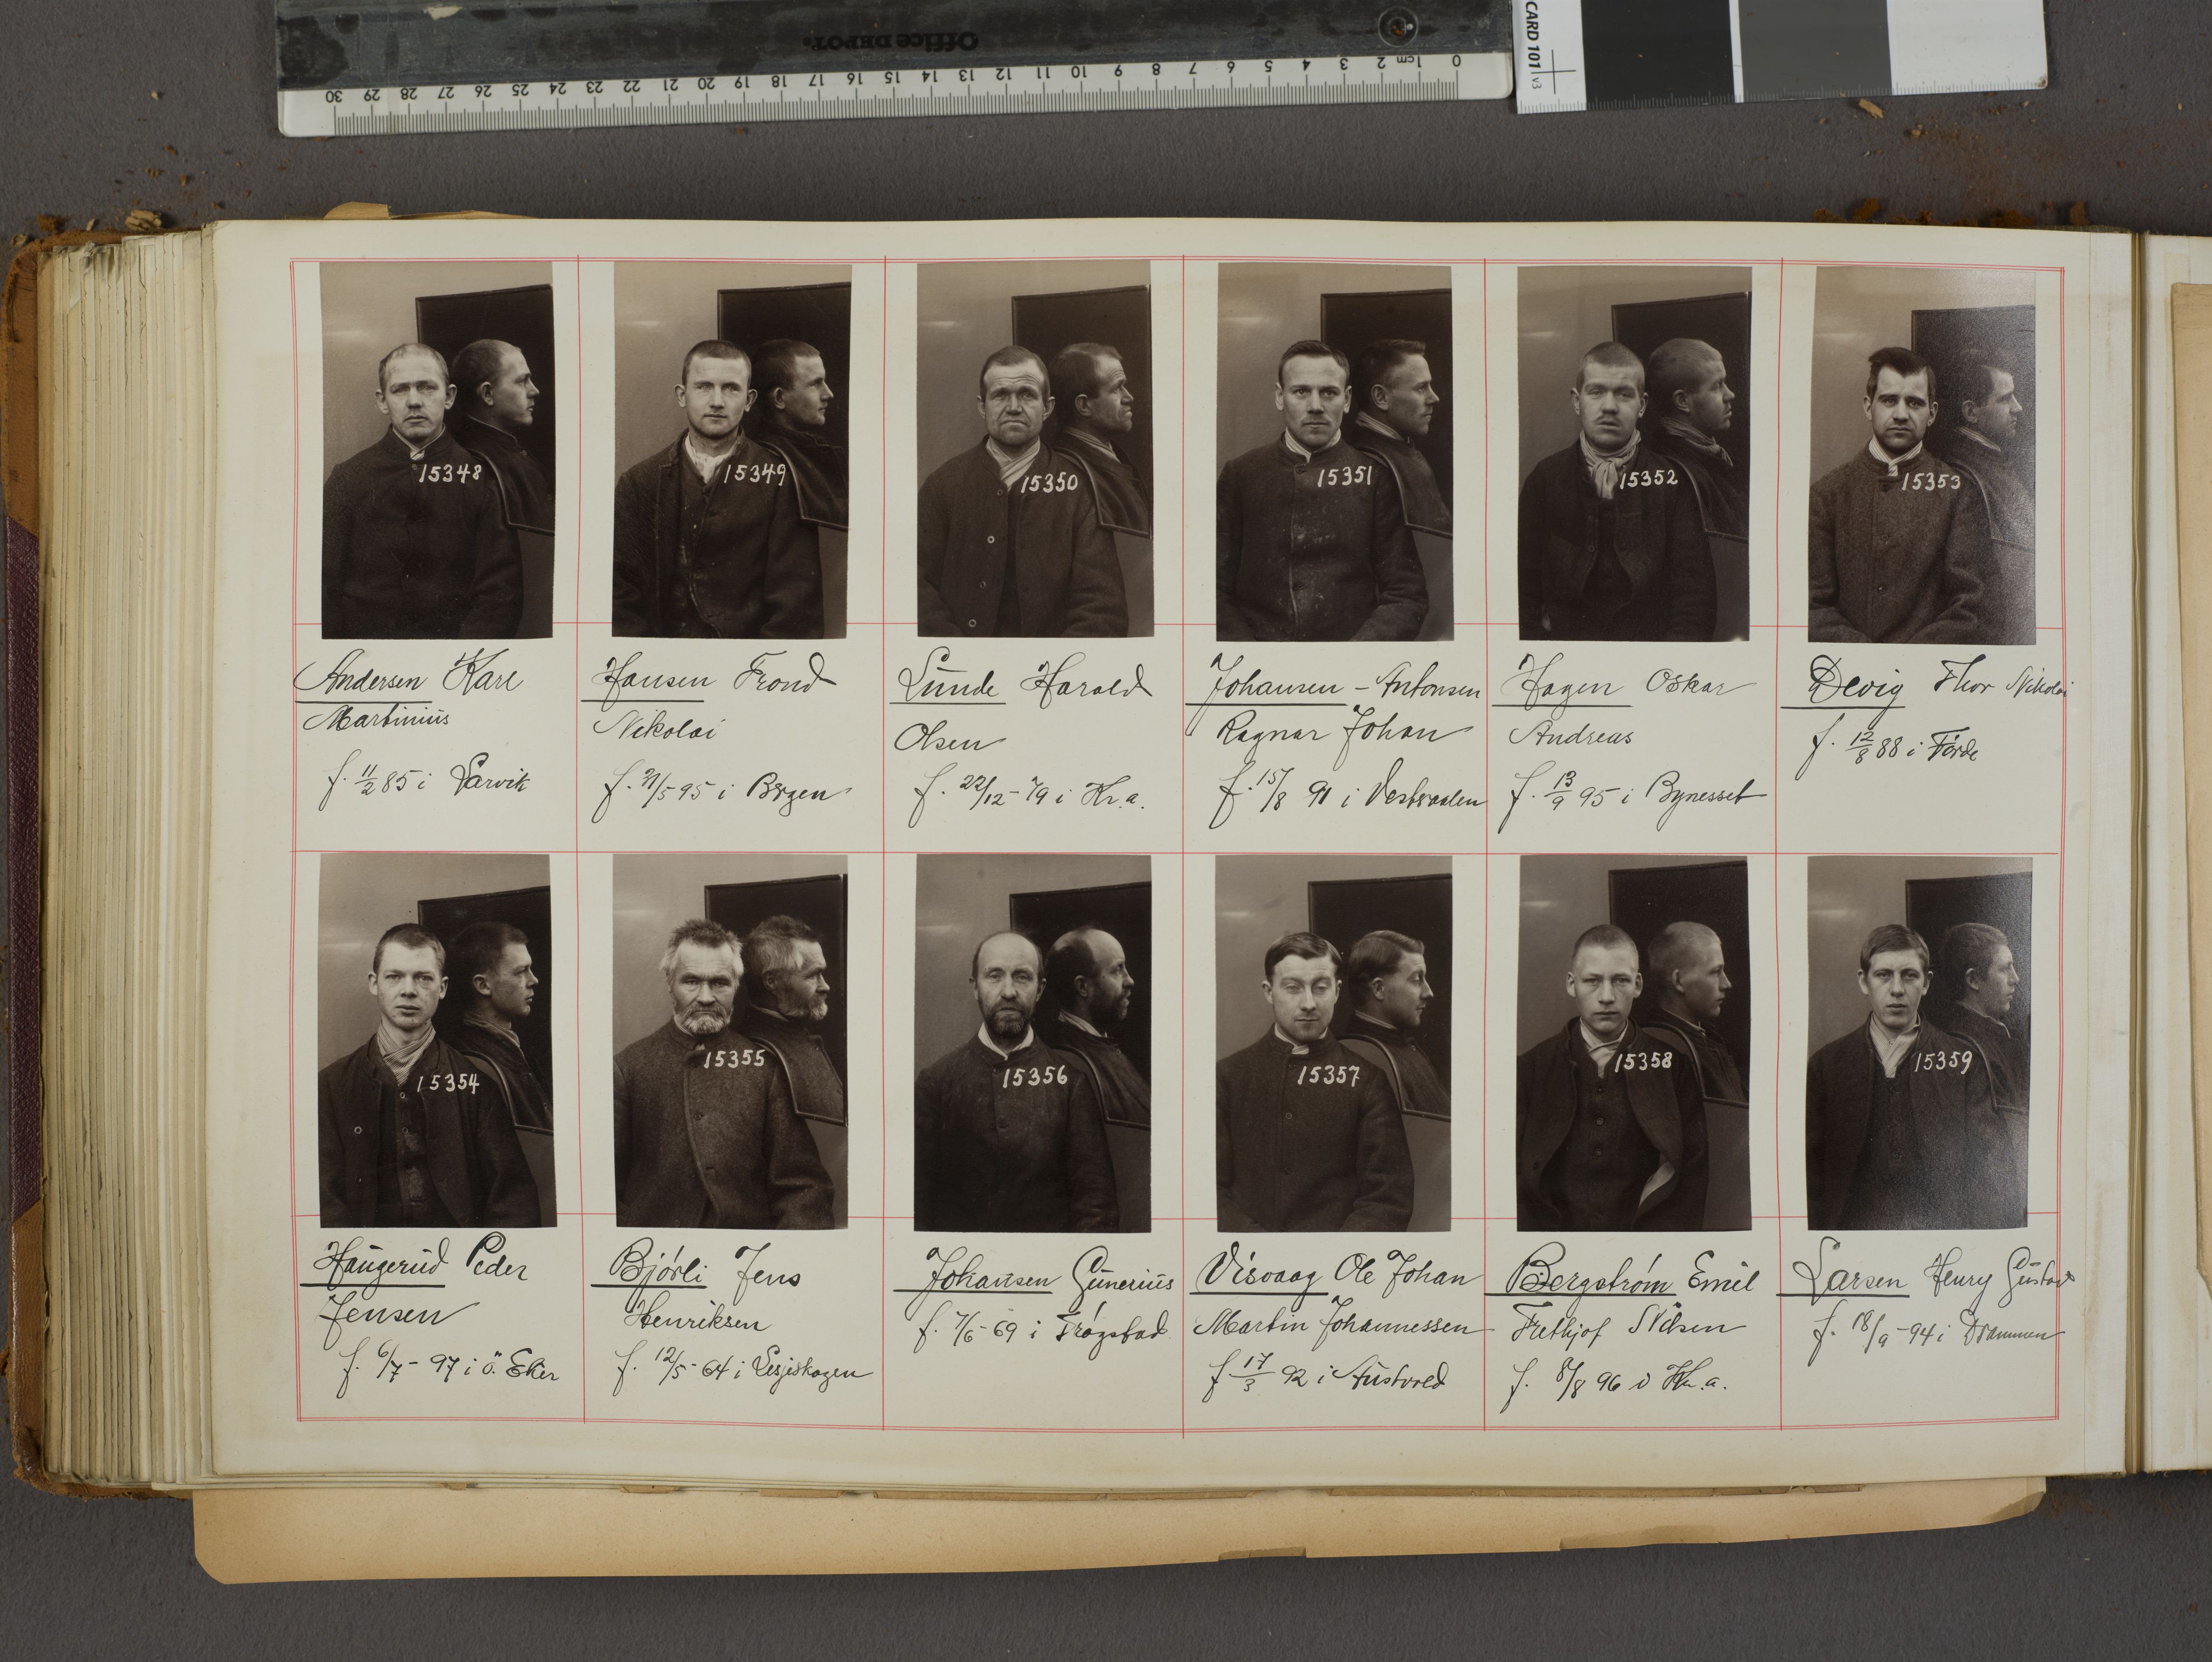 Office DEPOT.
0 1cm 2 3 4 5 6 7 8 9 10 11 12 13 14 15 16 17 18 19 20 21 22 23 24 25 26 27 28 29 30
CARD 101 v3
15348
15349
15350
15351
15352
15353
Andersen Karl
Martinius
f. 11/2 85 i Larvik
Hansen Trond
Nikolai
f. 21/5 95 i Bergen
Lunde Harald
Olsen
f. 22/12-79 i Kr.a.
Johansen - Antonsen
Ragnar Johan
f. 15/8 91 i Vesteraalen
Hagen Oskar
Andreas
f. 13/9 95 i Bynesset
Devig Thor Nikolai
f. 12/8 88 i Førde
15354
15355
15356
15357
15358
15359
Haugerud Peder
Jensen
f. 6/7 - 97 i ö. Eker
Bjørli Jens
Henriksen
f. 12/5-64 i Lesjeskogen
Johansen Gunerius
f. 7/6-69 i Trøgstad
Visvaag Ole Johan
Martin Johannessen
f. 17/3 92 i Austvold
Bergstrøm Emil
Frethjof Nilsen
f. 8/8 96 i Kr.a.
Larsen Henry Gustav
f. 18/9-94 i Drammen